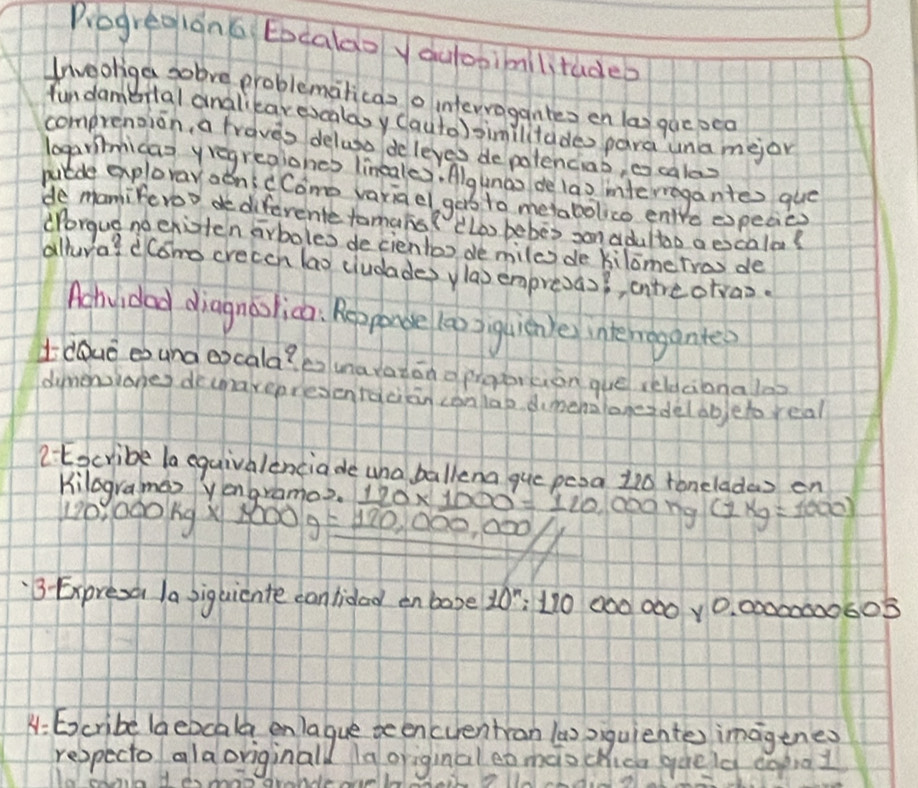 Progresión 6 Escalas y autosimilitudes
Investiga sobre problemáticas o interrogantes en las que sea
fundamental analizar escalas y (auto) similitudes para una mejor
comprensión, a través del uso de leyes de potencias, escalas
logarítmicas y regresiones lineales. Algunas de las interrogantes que
puede explorar son: ¿Cómo varía el gasto metabólico entre especies
de mamíferos de diferente tamaño? ¿Los bebés son adultos a escala?
¿Porque no existen árboles de cientos de miles de kilómetros de
altura? ¿Cómo crecen las ciudades y las empresas?, entre otras.
Actividad diagnóstica: Responde las siguientes interrogantes
1- ¿Qué es una escala? es una razón o proporción que relaciona las
dimensiones de una representación con las dimensiones del objeto real
2- Escribe la equivalencia de una ballena que pesa 120 toneladas en
Kilogramos y en gramos. 120 x 1000 = 120,000 (1 Kg = 1000)
120,000 Kg x 1000 g = 120,000,000
3- Expresa la siguiente cantidad en base 10ⁿ: 120 000 000 y 0.0000000605
4- Escribe la escala en la que se encuentran las siguientes imágenes
respecto a la original la original es más chica que la copia 1